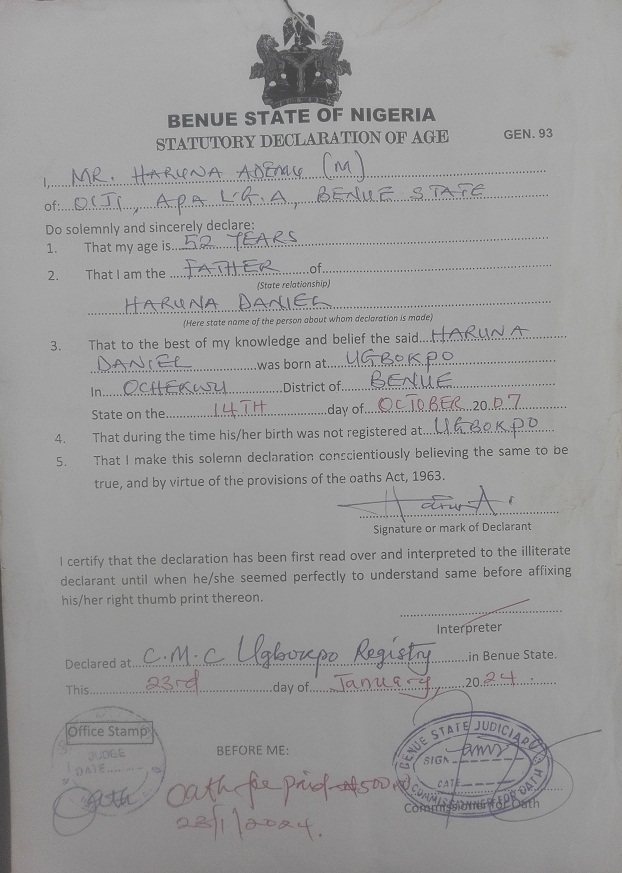 BENUE STATE OF NIGERIA
STATUTORY DECLARATION OF AGE GEN. 93
I, MR. HARUNA ADEMU (M)
of: OIJI, APA L.G.A, BENUE STATE
Do solemnly and sincerely declare:
1. That my age is 52 YEARS
2. That I am the FATHER of
(State relationship)
HARUNA DANIEL
(Here state name of the person about whom declaration is made)
3. That to the best of my knowledge and belief the said HARUNA
DANIEL was born at UGBOKPO
In OCHEKWU District of BENUE
State on the 14TH day of OCTOBER 2007
4. That during the time his/her birth was not registered at UGBOKPO
5. That I make this solemn declaration conscientiously believing the same to be
true, and by virtue of the provisions of the oaths Act, 1963.
Signature or mark of Declarant
I certify that the declaration has been first read over and interpreted to the illiterate
declarant until when he/she seemed perfectly to understand same before affixing
his/her right thumb print thereon.
Interpreter
Declared at C.M.C Ugbokpo Registry in Benue State.
This 23rd day of January, 2024.
Office Stamp
JUDGE
DATE
BEFORE ME:
Oath fee paid ₦500
23/1/2024.
BENUE STATE JUDICIARY
SIGN
DATE
COMMISSIONER FOR OATH
Commissioner for Oath